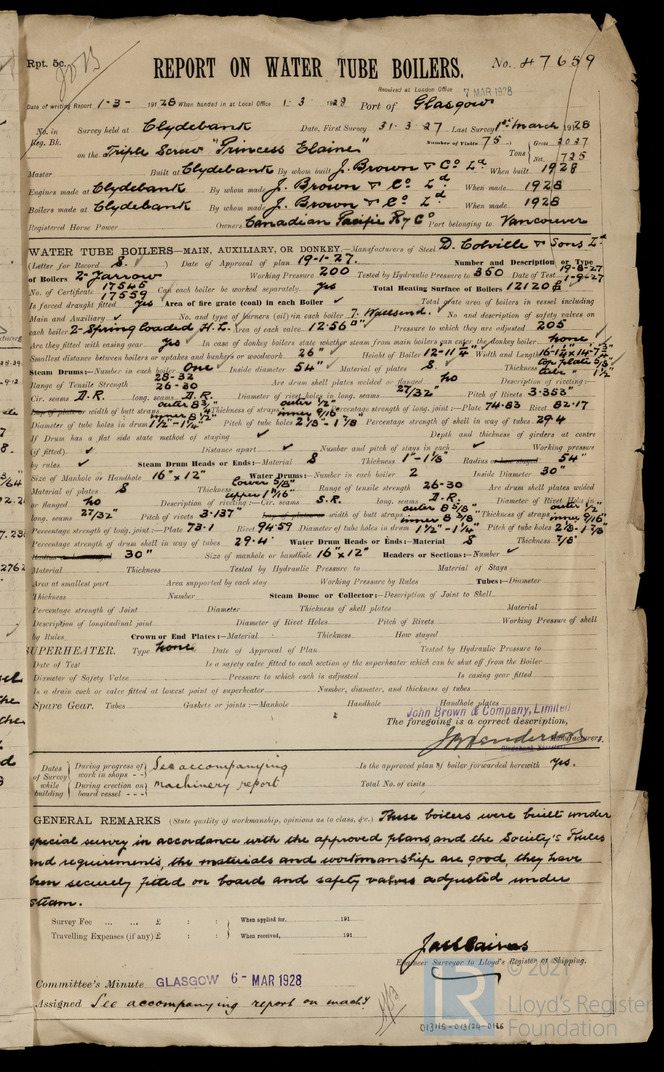 Rpt. 5c.
REPORT ON WATER TUBE BOILERS.
No. 47659
Received at London Office 7 MAR 1928
Date of writing Report 1-3- 1928 When handed in at Local Office 1.3.1928 Port of Glasgow
No. in Survey held at Clydebank Date, First Survey 31.3.27 Last Survey 1st March 1928
Reg. Bk. Number of Visits 75
on the Triple Screw "Princess Elaine" Tons Gross 2027 Net 725
Master Built at Clydebank By whom built J. Brown & Co Ld When built 1928
Engines made at Clydebank By whom made J. Brown & Co Ld When made 1928
Boilers made at Clydebank By whom made J. Brown & Co Ld When made 1928
Registered Horse Power Owners Canadian Pacific Ry Co Port belonging to Vancouver
WATER TUBE BOILERS—MAIN, AUXILIARY, OR DONKEY.—Manufacturers of Steel D. Colville & Sons Ld
(Letter for Record S.) Date of Approval of plan 19-1-27. Number and Description or Type
of Boilers 2-Yarrow Working Pressure 200 Tested by Hydraulic Pressure to 350 Date of Test 19-8-27 1-9-27
No. of Certificate 17546 17559 Can each boiler be worked separately. yes Total Heating Surface of Boilers 12120
Is forced draught fitted yes Area of fire grate (coal) in each Boiler ✓ Total grate area of boilers in vessel including
Main and Auxiliary ✓ No. and type of burners (oil) in each boiler 7. Wallsend. No. and description of safety valves on
each boiler 2-Spring loaded H.L. Area of each valve 12.56" Pressure to which they are adjusted 205
Are they fitted with easing gear yes In case of donkey boilers state whether steam from main boilers can enter the donkey boiler none
Smallest distance between boilers or uptakes and bunkers or woodwork 26" Height of Boiler Width and Length
Steam Drums:—Number in each boiler One Inside diameter 54" Material of plates S Thickness top plate 5/8" tube " 1 1/2"
Range of Tensile Strength 28-32 26-30 Are drum shell plates welded or flanged no Description of riveting:—
Cir. seams D.R. long. seams D.R. Diameter of rivet holes in long. seams 27/32" Pitch of Rivets 3.353"
width of butt straps Thickness of straps outer 1/2" inner 9/16" Percentage strength of long. joint:—Plate 74.83 Rivet 82.17
Diameter of tube holes in drum 1 1/2"-1 1/4" Pitch of tube holes 2 1/8"-1 7/8" Percentage strength of shell in way of tubes 29.4
If Drum has a flat side state method of staying ✓ Depth and thickness of girders at centre
(if fitted). ✓ Distance apart ✓ Number and pitch of stays in each ✓ Working pressure
by rules ✓ Steam Drum Heads or Ends:—Material S Thickness 1"-1 1/8" Radius 54"
Size of Manhole or Handhole 16"x12" Water Drums:—Number in each boiler 2 Inside Diameter 30"
Material of plates S Thickness lower 5/8" upper 1 1/16" Range of tensile strength 26-30 Are drum shell plates welded
or flanged no Description of riveting:—Cir. seams S.R. long. seams D.R. Diameter of Rivet Holes in
long. seams 27/32" Pitch of rivets 3.137" width of butt straps outer 8 5/8" inner 8 3/8" Thickness of straps outer 1/2" inner 9/16"
Percentage strength of long. joint:—Plate 73.1 Rivet 94.59 Diameter of tube holes in drums 1 1/2"-1 1/4" Pitch of tube holes 2 1/8-1 7/8
Percentage strength of drum shell in way of tubes 29.4 Water Drum Heads or Ends:—Material S Thickness 7/8"
30" Size of manhole or handhole 16"x12" Headers or Sections:—Number ✓
Material Thickness Tested by Hydraulic Pressure to Material of Stays
Area at smallest part Area supported by each stay Working Pressure by Rules Tubes:—Diameter
Thickness Number Steam Dome or Collector:—Description of Joint to Shell
Percentage strength of Joint Diameter Thickness of shell plates Material
Description of longitudinal joint Diameter of Rivet Holes Pitch of Rivets Working Pressure of shell
by Rules Crown or End Plates:—Material Thickness How stayed
SUPERHEATER. Type none Date of Approval of Plan Tested by Hydraulic Pressure to
Date of Test Is a safety valve fitted to each section of the superheater which can be shut off from the Boiler
Diameter of Safety Valve Pressure to which each is adjusted Is easing gear fitted
Is a drain cock or valve fitted at lowest point of superheater Number, diameter, and thickness of tubes
Spare Gear. Tubes Gaskets or joints:—Manhole Handhole Handhole plates
John Brown & Company, Limited
The foregoing is a correct description,
Manufacturers.
Dates of Survey while building
During progress of work in shops - - See accompanying Is the approved plan of boiler forwarded herewith yes.
During erection on board vessel - - - machinery report Total No. of visits
GENERAL REMARKS (State quality of workmanship, opinions as to class, &c.) These boilers were built under
special survey in accordance with the approved plans, and the Society's Rules
and requirements, the materials and workmanship are good, they have
been securely fitted on board and safety valves adjusted under
steam.
Survey Fee ... ... £ : : When applied for, 191
Travelling Expenses (if any) £ : : When received, 191
Engineer Surveyor to Lloyd's Register of Shipping.
Committee's Minute GLASGOW 6-MAR 1928
Assigned See accompanying report on machy
© 2021
LR Lloyd's Register Foundation
013116-013124-0126